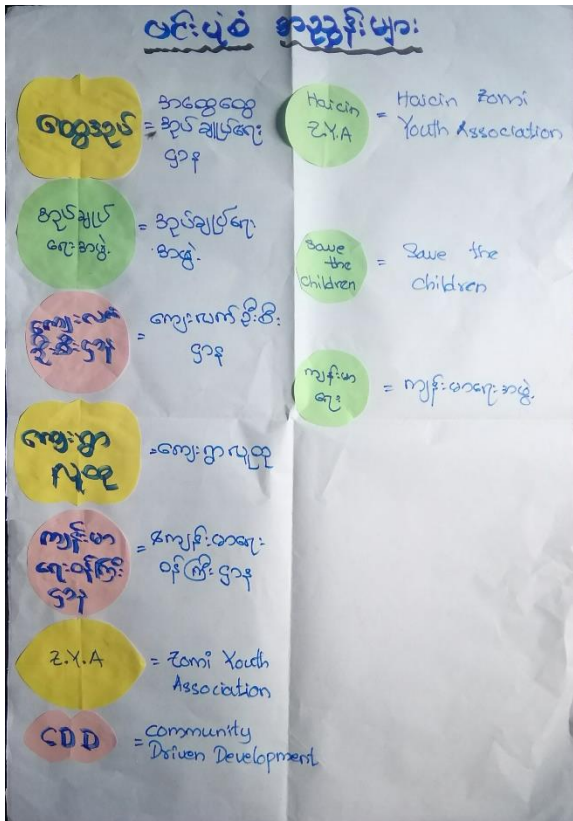 ဗင်းပုံစံ အညွှန်းများ
ထွေအုပ်
= အထွေထွေ
အုပ်ချုပ်ရေး
ဌာန
အုပ်ချုပ်
ရေးအဖွဲ့
= အုပ်ချုပ်ရေး
အဖွဲ့
ကျေးလက်
ဦးစီးဌာန
= ကျေးလက်ဦးစီး
ဌာန
ကျေးရွာ
လူထု
=ကျေးရွာလူထု
ကျန်းမာ
ရေးဝန်ကြီး
ဌာန
=ကျန်းမာရေး
ဝန်ကြီးဌာန
Z.Y.A
= Zomi Youth
Association
CDD
= Community
Driven Development
Haicin
Z.Y.A
= Haicin Zomi
Youth Association
Save
the
Children
= Save the
Children
ကျန်းမာ
ရေး
= ကျန်းမာရေးအဖွဲ့